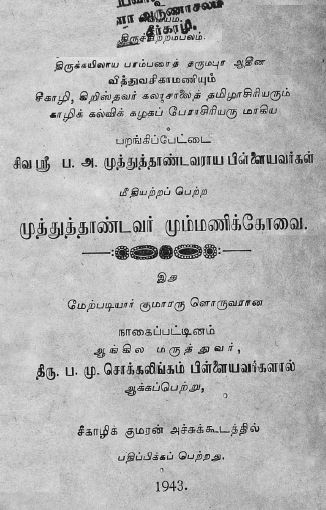 ளா அருணாசலம்
சீர்காழி.
திருச்சிற்றம்பலம்.
திருக்கயிலாய பரம்பரைத் தருமபுர ஆதீன
வித்துவசிகாமணியும்
சீகாழி, கிறிஸ்தவர் கலாசாலைத் தமிழாசிரியரும்
காழிக் கல்விக் கழகப் பேராசிரியரு மாகிய
பறங்கிப்பேட்டை
சிவஸ்ரீ ப. அ. முத்துத்தாண்டவராய பிள்ளையவர்கள்
மீதியற்றப் பெற்ற
முத்துத்தாண்டவர் மும்மணிக்கோவை.
இது
மேற்படியார் குமாரரு ளொருவரான
நாகைப்பட்டினம்
ஆங்கில மருத்துவர்,
திரு. ப. மு. சொக்கலிங்கம் பிள்ளையவர்களால்
ஆக்கப்பெற்று,
சீகாழிக் குமரன் அச்சுக்கூடத்தில்
பதிப்பிக்கப் பெற்றது.
1943.